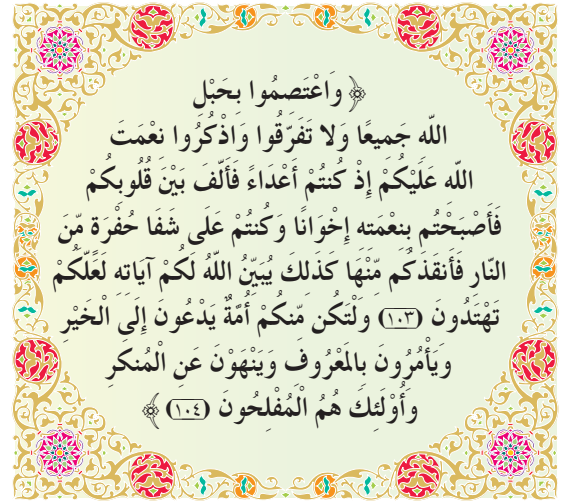 ﴿ وَاعْتَصِمُوا بِحَبْلِ
اللّه جَمِيعًا وَلا تَفَرّقُوا وَاذْكُرُوا نِعْمَتَ
اللّه عَلَيْكُمْ إِذْ كُنتُمْ أَعْدَاءً فَأَلّفَ بَيْنَ قُلُوبِكُمْ
فَأَصْبَحْتُم بِنِعْمَتِه إِخْوَانًا وَكُنتُمْ عَلَى شَفَا حُفْرَة مّنَ
النّارِ فَأَنقَذَكُم مِّنْهَا كَذَلِكَ يُبَيِّنُ اللّهُ لَكُمْ آيَاتِه لَعَلّكُمْ
تَهْتَدُونَ (١٠٣) وَلْتَكُن مّنكُمْ أُمّةٌ يَدْعُونَ إِلَى الْخَيْرِ
وَيَأْمُرُونَ بِالمَعْرُوفِ وَيَنْهَوْنَ عَنِ الْمُنكَرِ
وَأُوْلَئِكَ هُمُ الْمُفْلِحُونَ (١٠٤) ﴾